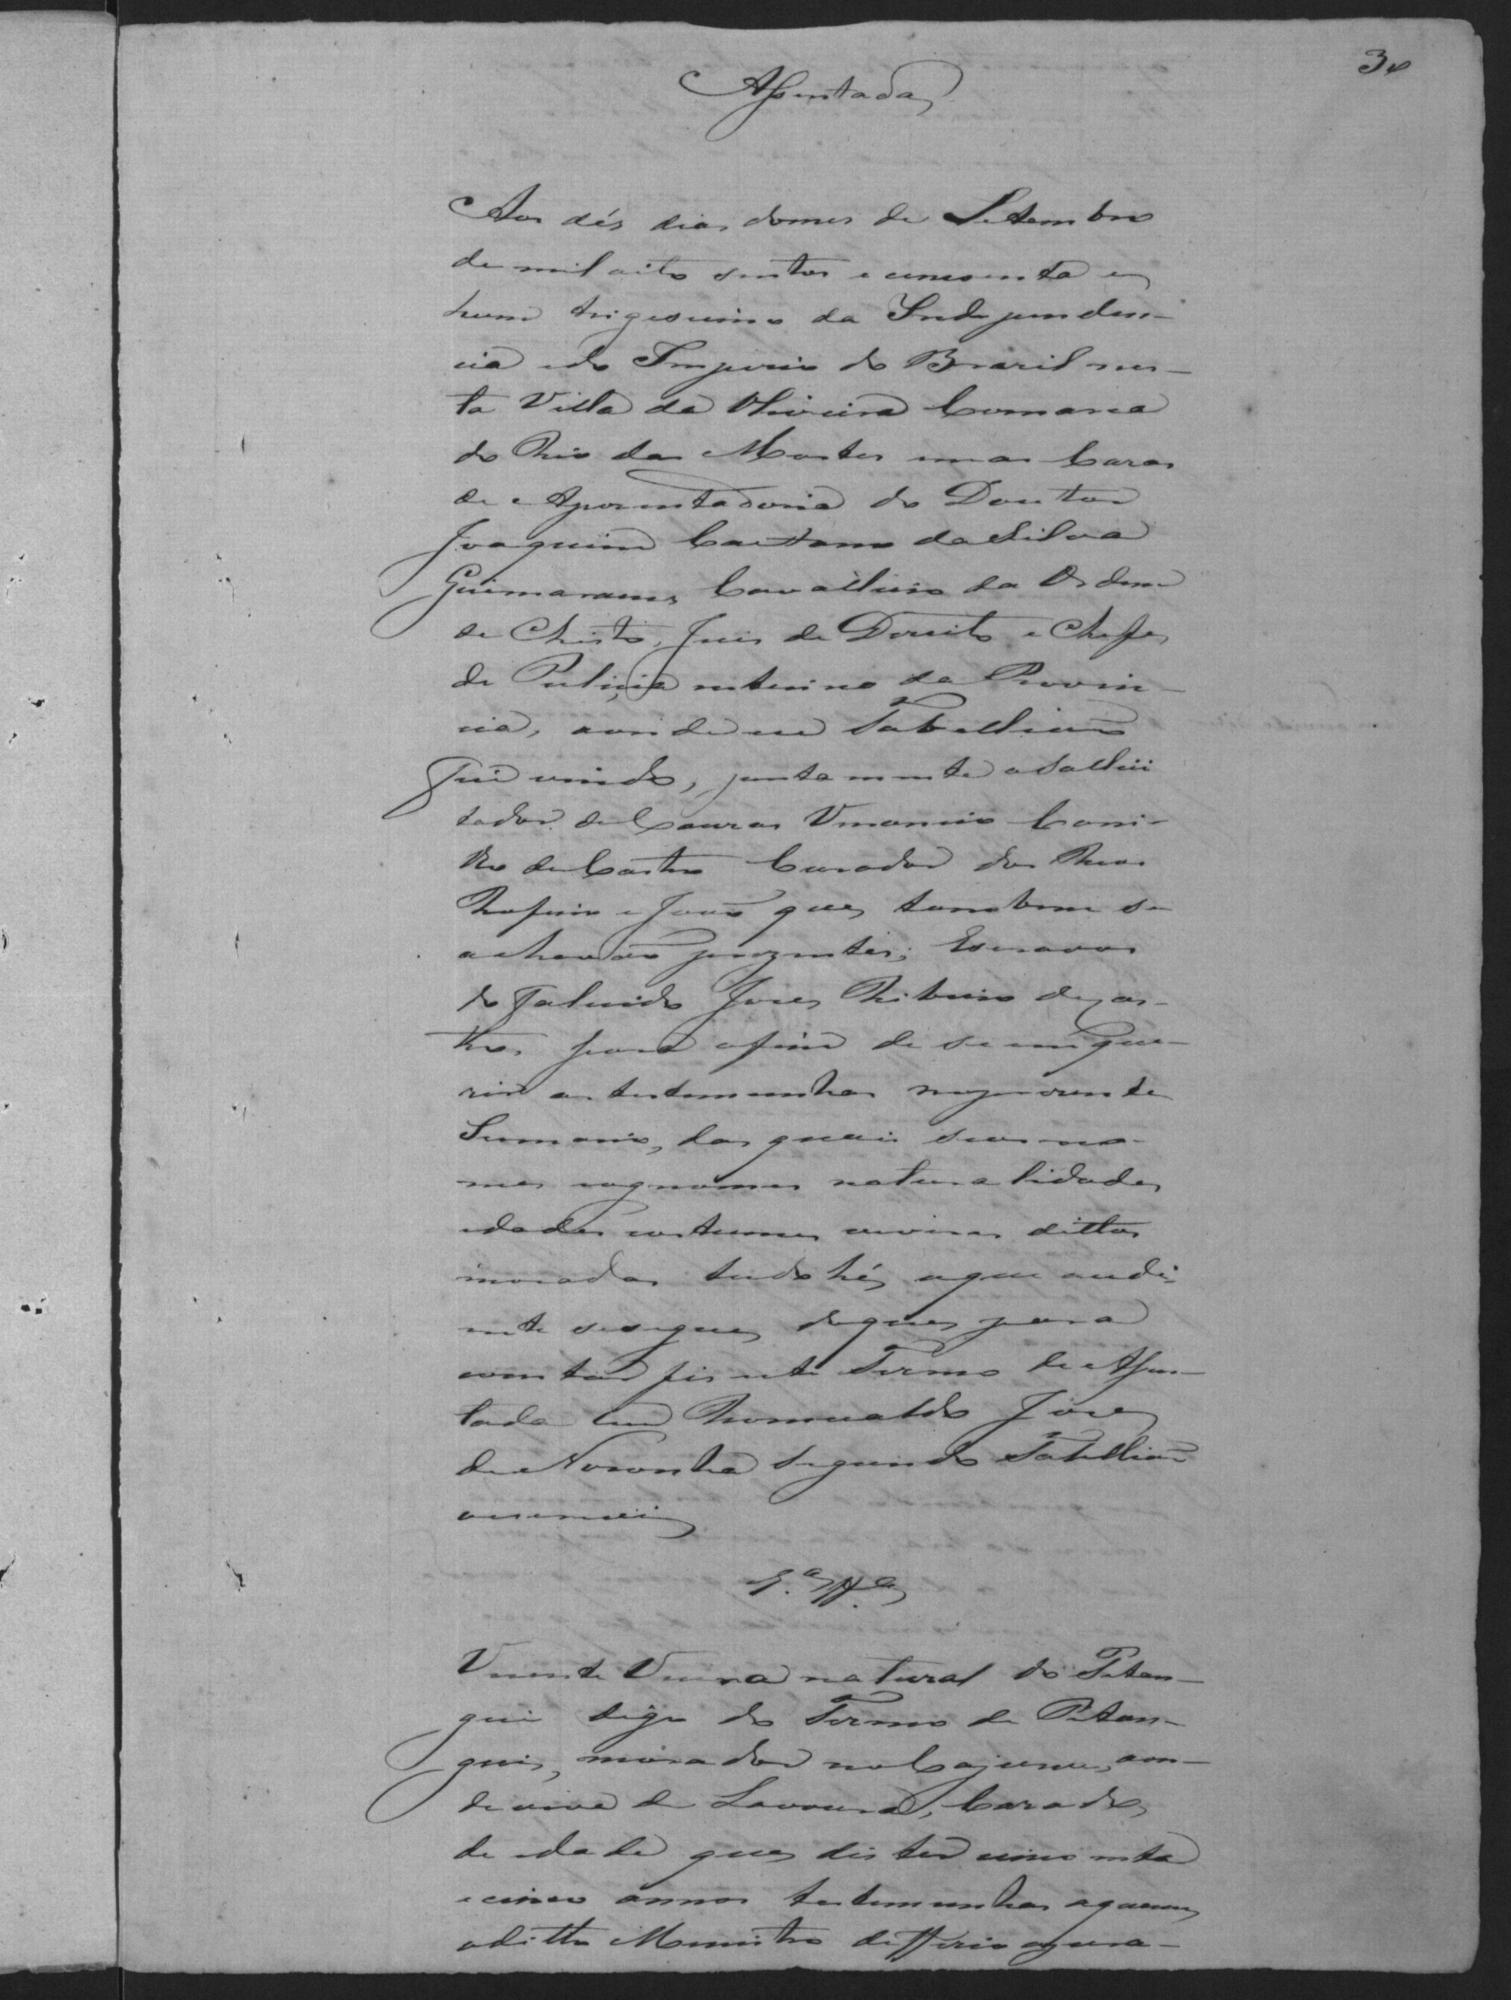 34
Assentada
Aos dés dias domes de Setembro
de mil oito sentos e cincoenta e
hum trigesimo da Independen-
cia edo Imperio do Brazil nes-
ta Villa da Oliveira Comarca
do Rio das Mortes em as Cazas
de Aposentadoria do Doutor
Joaquim Caetano da Silva
Guimaraens Cavalleiro da Ordem
de Christo, Juis de Dereito e Chefe
de Pulicia interino da Provin-
cia, aonde eu Tabelliaõ
fui vindo, juntamente o Sollici
tador de Cauzas Venancio
de Castro Curador dos Reos
Rofino e Joaõ que tambem se
achavaõ prezentes; Escravos
do falecido Jose Ribeiro de cas-
tro, para ofim de se enque-
rir as testemunhas no prezente
Sumario, das quais seos no-
mes cognomes naturalidades
idades costumes viveres dittos
moradas tudo hé, oque ao di-
ante sesegue, doque para
constar fis este Termo de Assen-
tada eu Romualdo Jose
de Noronha segundo Tabelliaõ
oescrevi
1.ª T.ª
Vicente Vieira natural do Pitan-
gui digo do Termo de Pitan-
gui, morador no Cajuru, aon-
de vive de Lavoura, Cazado,
de idade que dis ter cincoenta
e cinco annos testemunha aquem
oditto Menistro defferio ojura-